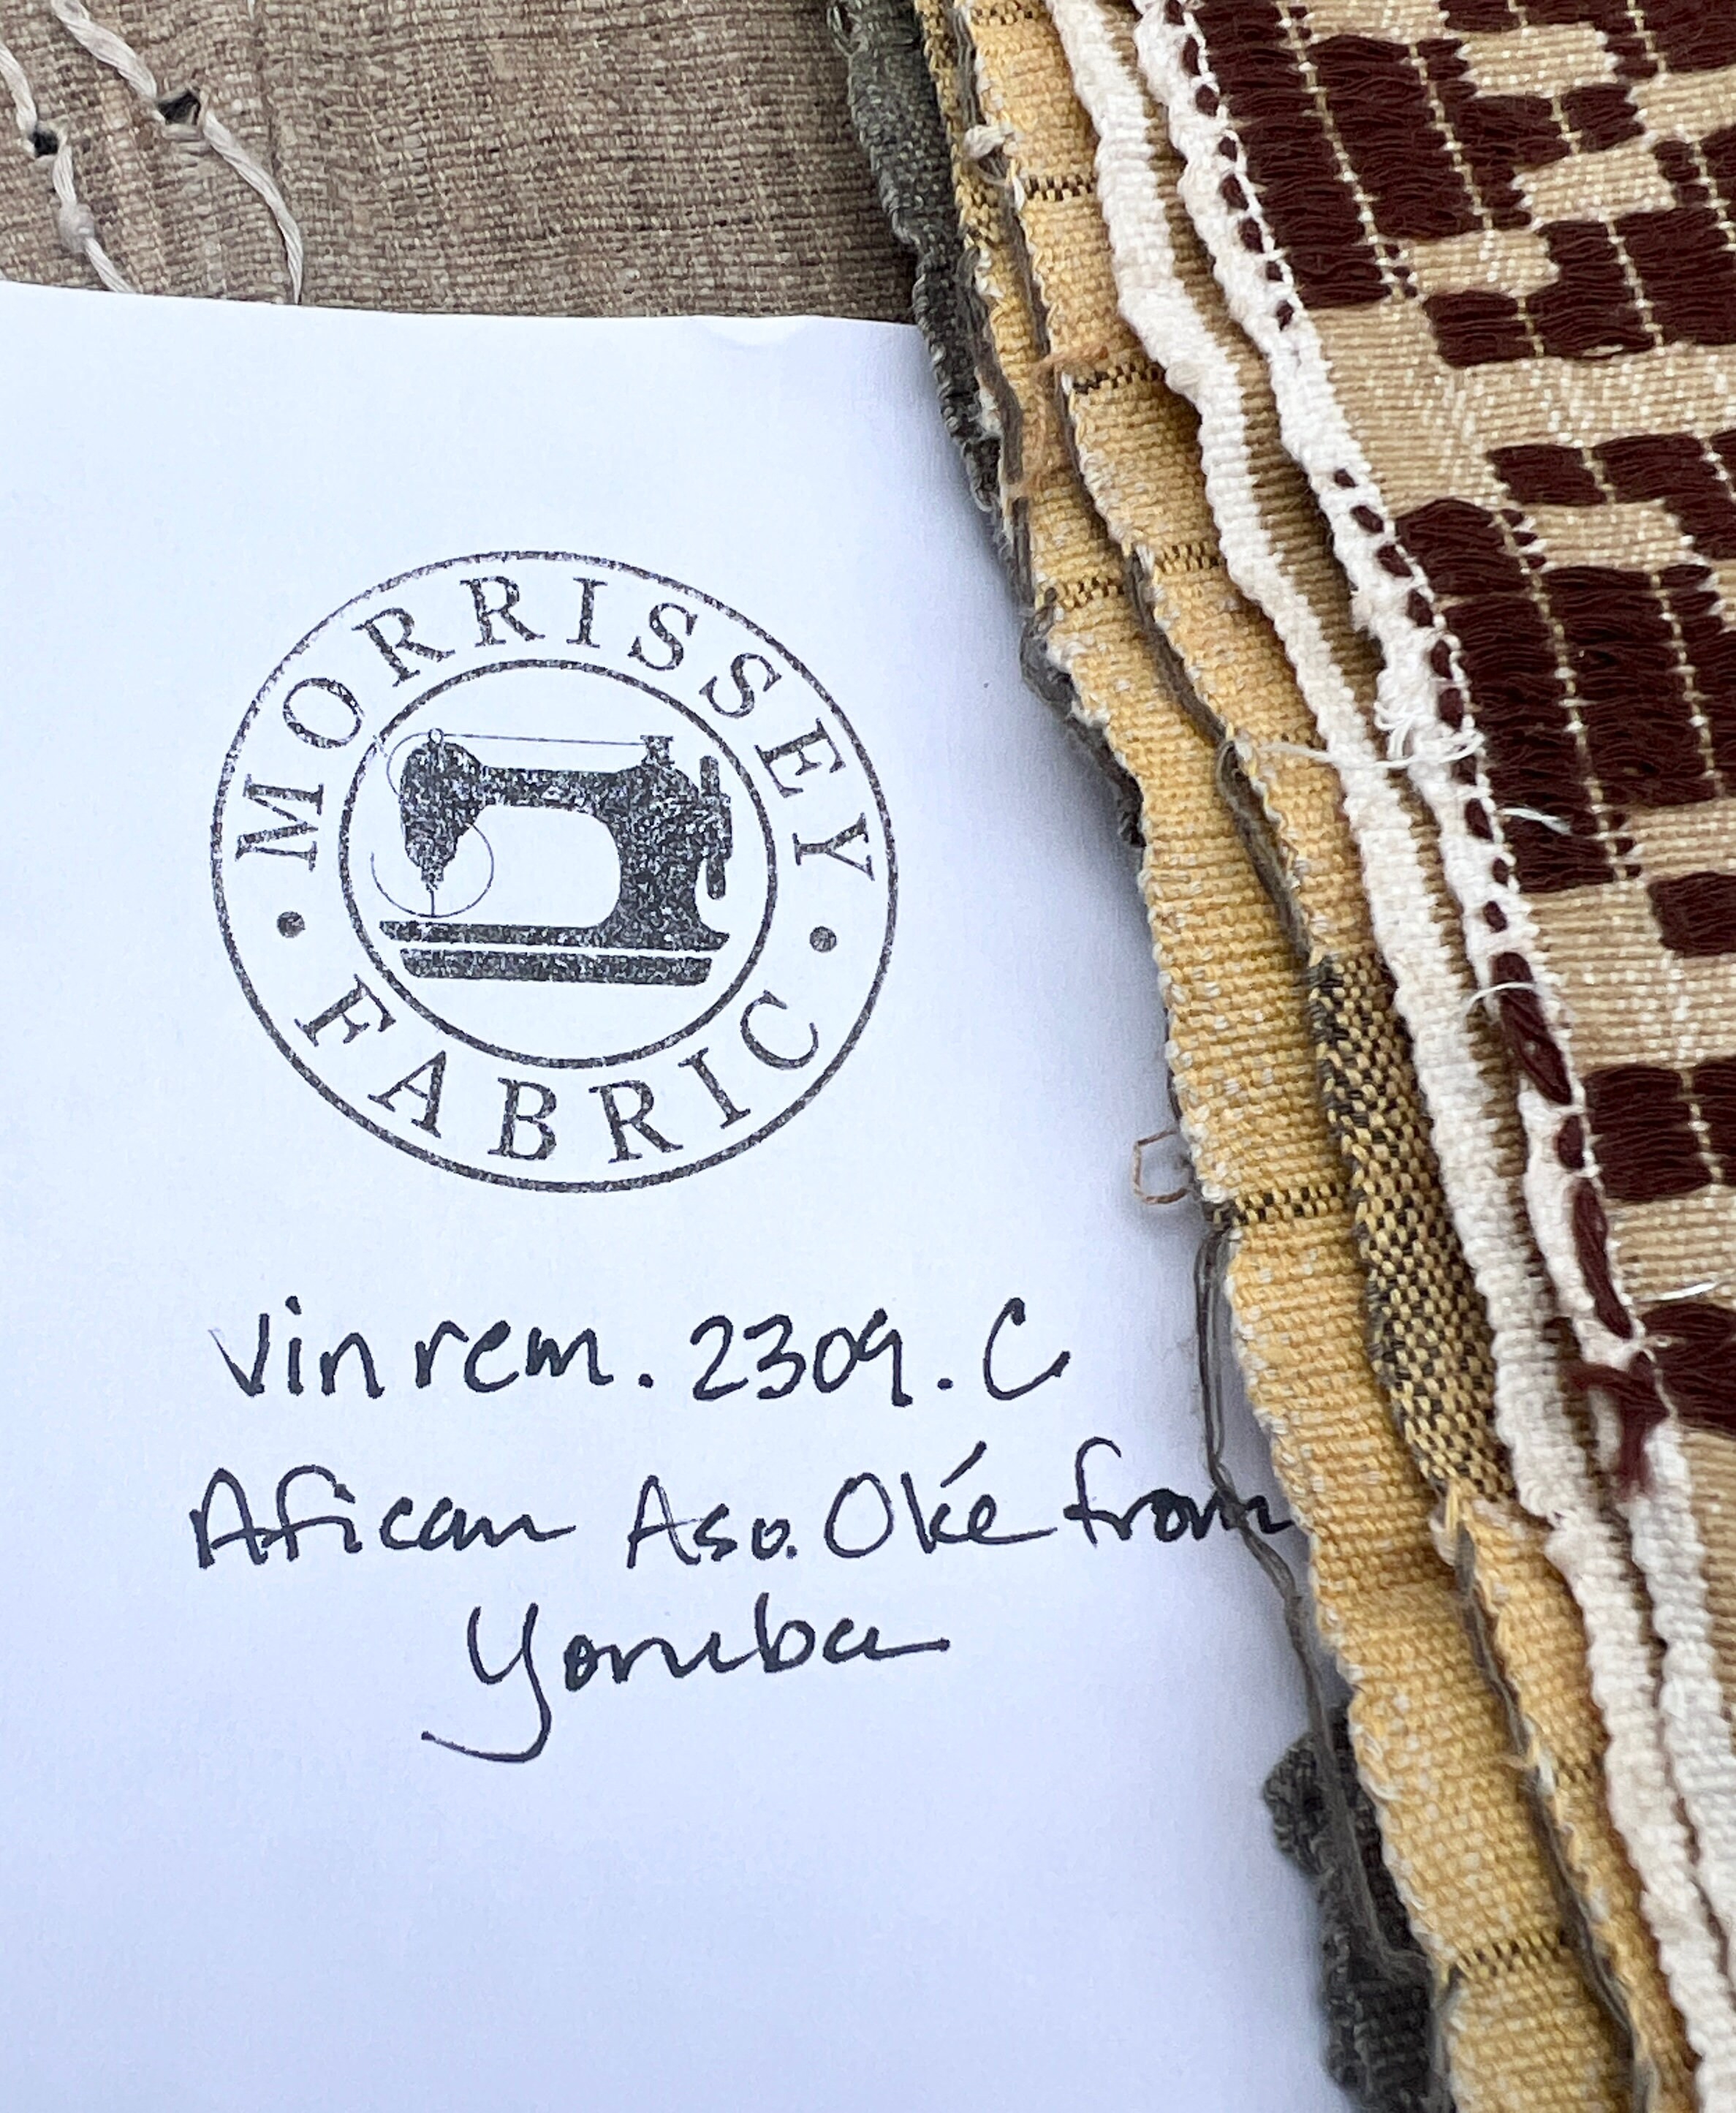 MORRISSEY
FABRIC
Vinrem. 2309. C
Afican Aso. Oké from
Yoruba